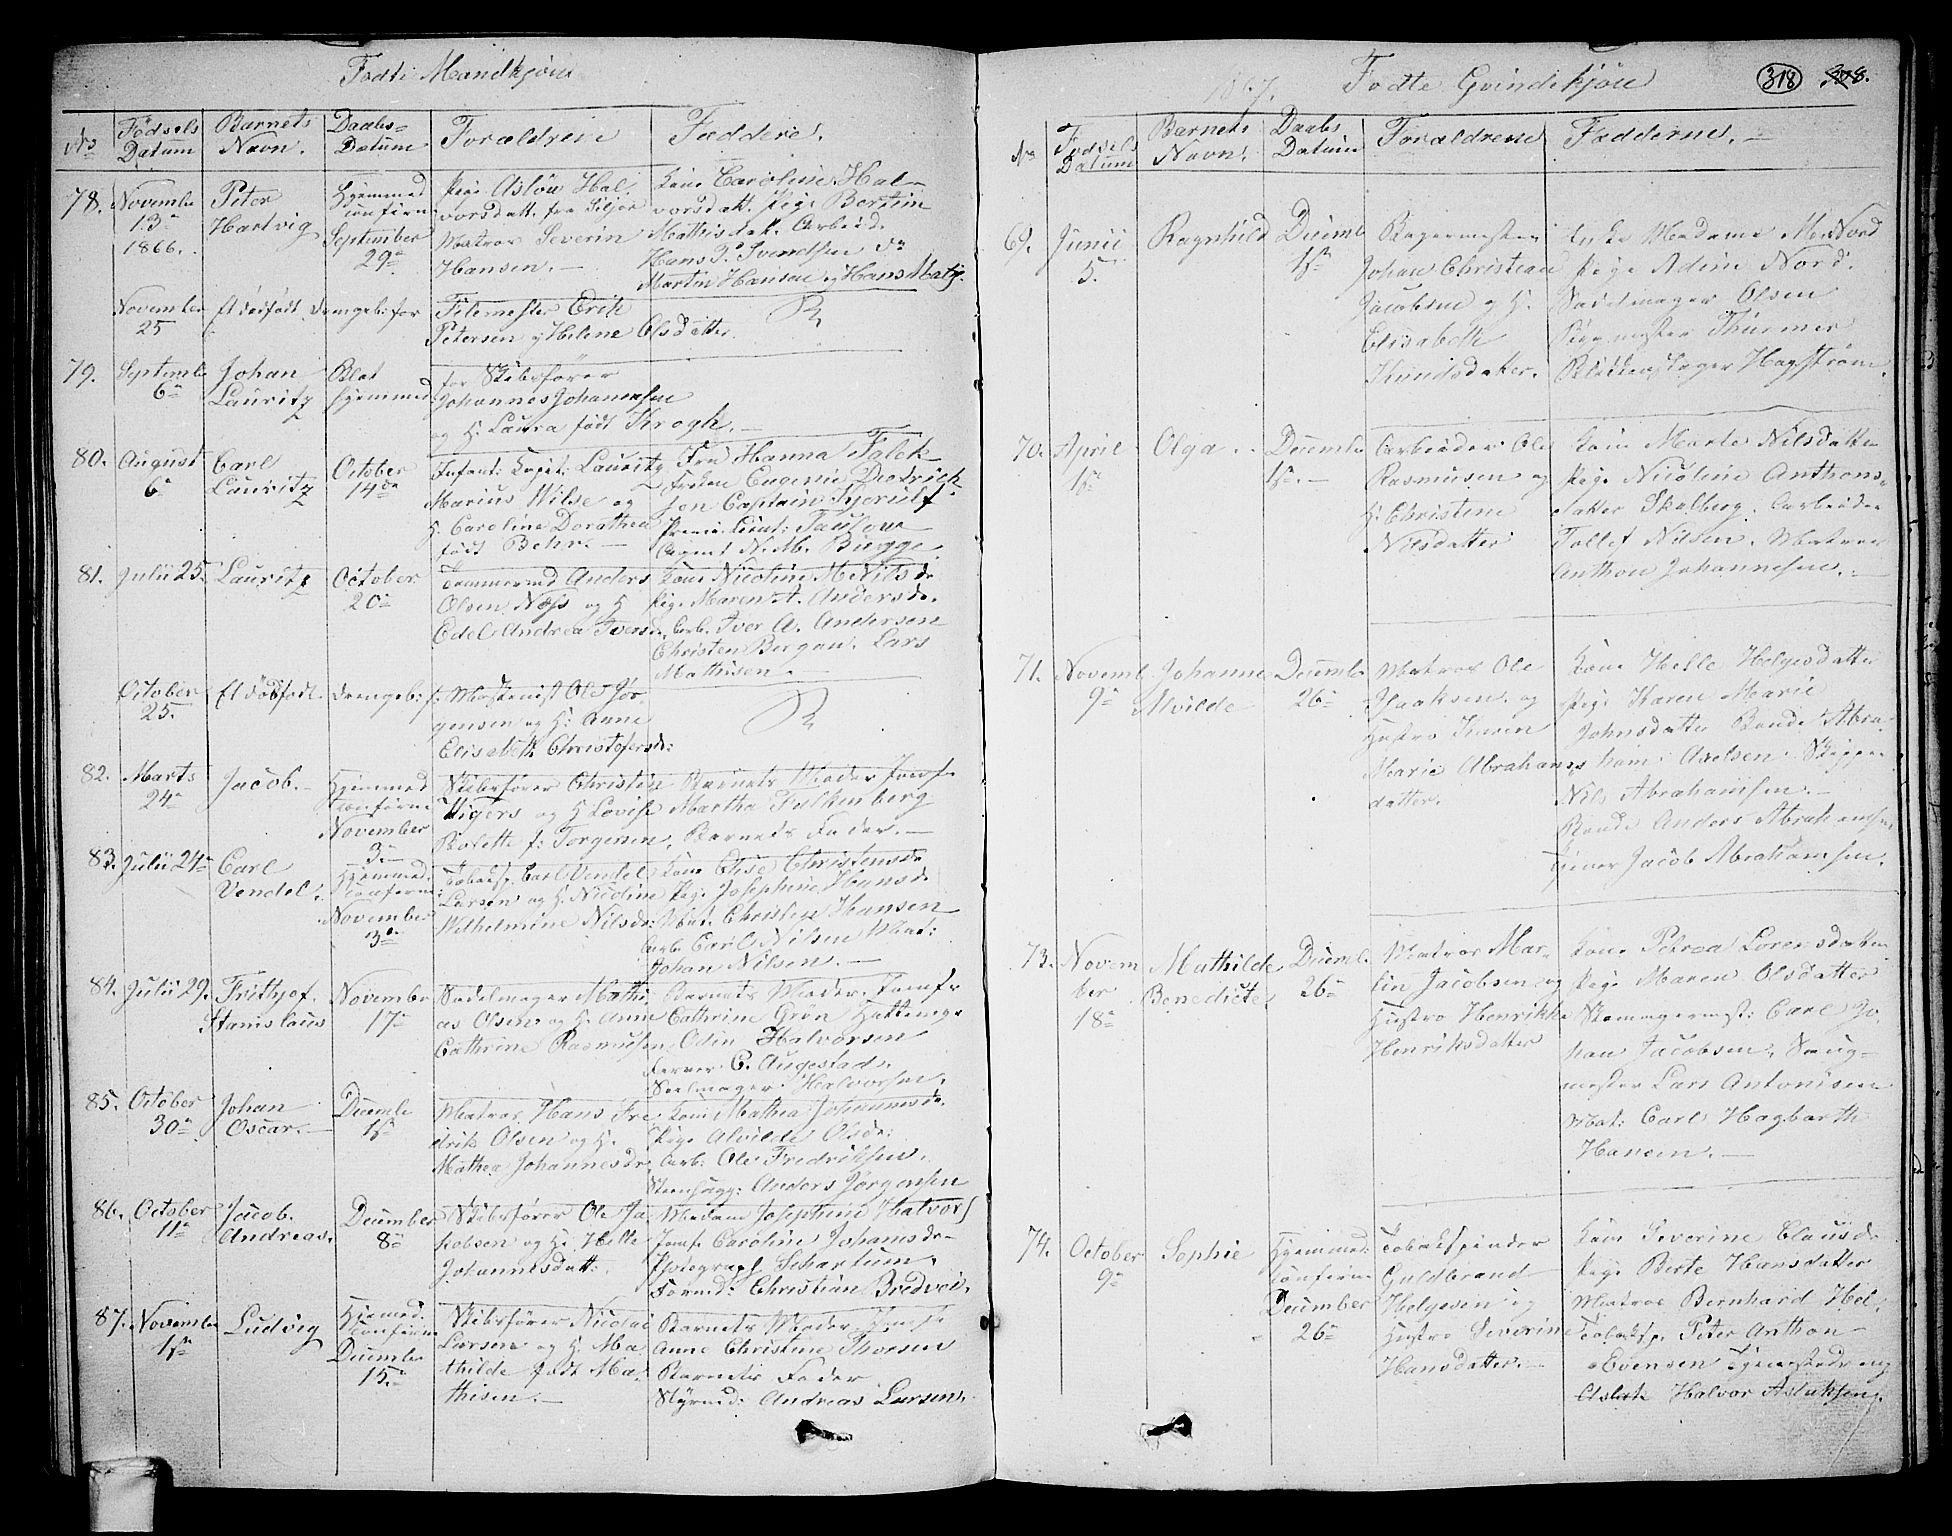 Fødte Mandkjøn
No Fødsels Datum Barnets Navn. Daabs- Datum Forældrene Faddere.
78. Novembr 13de 1866. Peter Hartvig Hjemmed confirm September 29de
Pige Aslöu Hal-
vorsdatt. fra Siljor
Matros Severin
Hansen. —
Kone Caroline Hal-
vorsdatt. Pige Bertin
Mathisdat. Arbeid.
Hans P. Svendsen do
Martin Hansen og Hans Mathj.
November 25 Et dødfødt Drengeb: for
Filemester Erik
Petersen og Helene Olsdatter.
79. Septembr 6te Johan Lauritz Blot hjemmed
for Skibsfører
Johannes Johannesen
og H. Laura født Krogh. —
80. August 6te Carl Lauritz October 14de
Infant: Capit: Lauritz
Marius Wilse og
H. Caroline Dorathea
født Behr. —
Fru Hanna Falck
Frøken Eugenie Diedrich-
sen Captain
Premie. Lieut: Faulow
Agent N. M. Bugge.
81. Julii 25. Lauritz October 20de
Tømmermd Anders
Olsen Næss og H
Edel Andrea Iversd.
Kone Nicoline M. Nilsdr
Pige Maren A. Andersdr.
Arb. Iver A. Andersen
Christen Bergan. Lars
Mathisen. —
October 25. Et dødfødt Drengeb: f.
Maskenist Ole Jør-
gensen og H: Anne
Elisabeth Christofersdr:
82. Marts 24de Jacob. Hjemmed Confirme November 3de
Skibsfører Christen
Wigers og H Lovise
Bolette f: Torgersen,
Barnets Moder Jomf.
Martha Falkenberg
Barnets Fader. —
83. Julii 24de Carl Vendel. Hjemmed. confirm: November 3de
Tobaksp. Carl Vendel
Larsen og H. Nicoline
Wilhelmine Nilsdr:
Kone Elise Christensdr
Pige Josephine Hansdr
Mat. Christen Hansen
Arb. Carl Nilsen Mat:
Johan Nilsen. —
84. Julii 29. Frithjof Stanislaus November 17de
Sadelmager Mathi-
as Olsen og H. Anne
Cathrine Rasmussen
Barnets Moder. Jomfr
Cathrine Grøn Hattemgr
Odin Halvorsen
Farver C. Augestad.
Sadelmager Halvorsen.
85. October 30de Johan Oscar. — Decembr 1ste
Matros Hans Fre
drik Olsen og H.
Mathea Johannesdr
Kone Mathea Johannesdr.
Pige Alvilde Olsdr:
Arb: Ole Fredriksen.
Steenhugg: Anders Jørgensen
86. October 11te Jacob Andreas. December 8de
Skibsfører Ole Ja-
kobsen og H: Helle
Johannesdatt:
Madam Josephine Halvors
Jomf. Caroline Johansdr
Photograph Schartum.
Formd: Christian Bredvei.
87. November 1ste Ludvig Hjemed. Confirm December 15de
Skibsfører Nicolai
Larsen og H. Ma
thilde født Ma-
thisen. —
Barnets Moder, Jomfr
Anne Christine Thorsen
Barnets Fader
Styrmd: Andreas Larsen.
1867. Fødte Qvindekjøn 318 328.
No Fødsels Datum Barnets Navn. Daabs Datum Forældrene Fadderne. —
69. Junii 5. Ragnhild Decembr 1ste
Bagermester
Johan Christian
Jacobsen og H.
Elisabeth
Knudsdatter.
Enke Madame M. Nord
Pige Adine Nord.
Sadelmager Olsen
Bygmester Thurmer
Blikkenslager Hagstrøm.
70. April 1ste Olga. Decembr 1ste. —
Arbeider Ole
Rasmusen og
H. Christine
Nilsdatter
Kone Marte Nilsdatter
Pige Nicoline Anthons-
datter Skalberg. Arbeider
Tollef Nilsen. Matros
Anthon Johannesen. —
71. Novembr 9de Johanne Alvilde Decembr 26de
Matros Ole
Isaksen. og
Hustro Karen
Marie Abrahams
datter.
Kone Helle Helgesdatter
Pige Karen Marie
Johnsdatter Bonde Abra-
ham Axelsen. Skipper
Nils Abrahamsen. —
Bonde Anders Abrahamsen
Jacob Abrahamsen.
73. Novem ber 18de Mathilde Benedicte Decembr 26de
Matros Mar-
tin Jacobsen og
Hustro Henrikke
Henriksdatter
Kone Petrea Lorensdatter
Pige Maren Olsdatter
Skomagermst: Carl Jo
han Jacobsen, Saug-
mester Lars Antonisen
Mat: Carl Hagbarth
Hansen. —
74. October 9de Sophie Hjemmed: confirm December 26de
Tobakspinder
Guldbrand
Helgesen og
Hustro Severine
Hansdatter. —
Kone Severine Clausdr
Pige Berte Hansdatter
Matros Bernhard Hel-
Tobaksp. Peter Anthon
Evensen Tjenestedreng
Aslak Halvor Aslaksen.